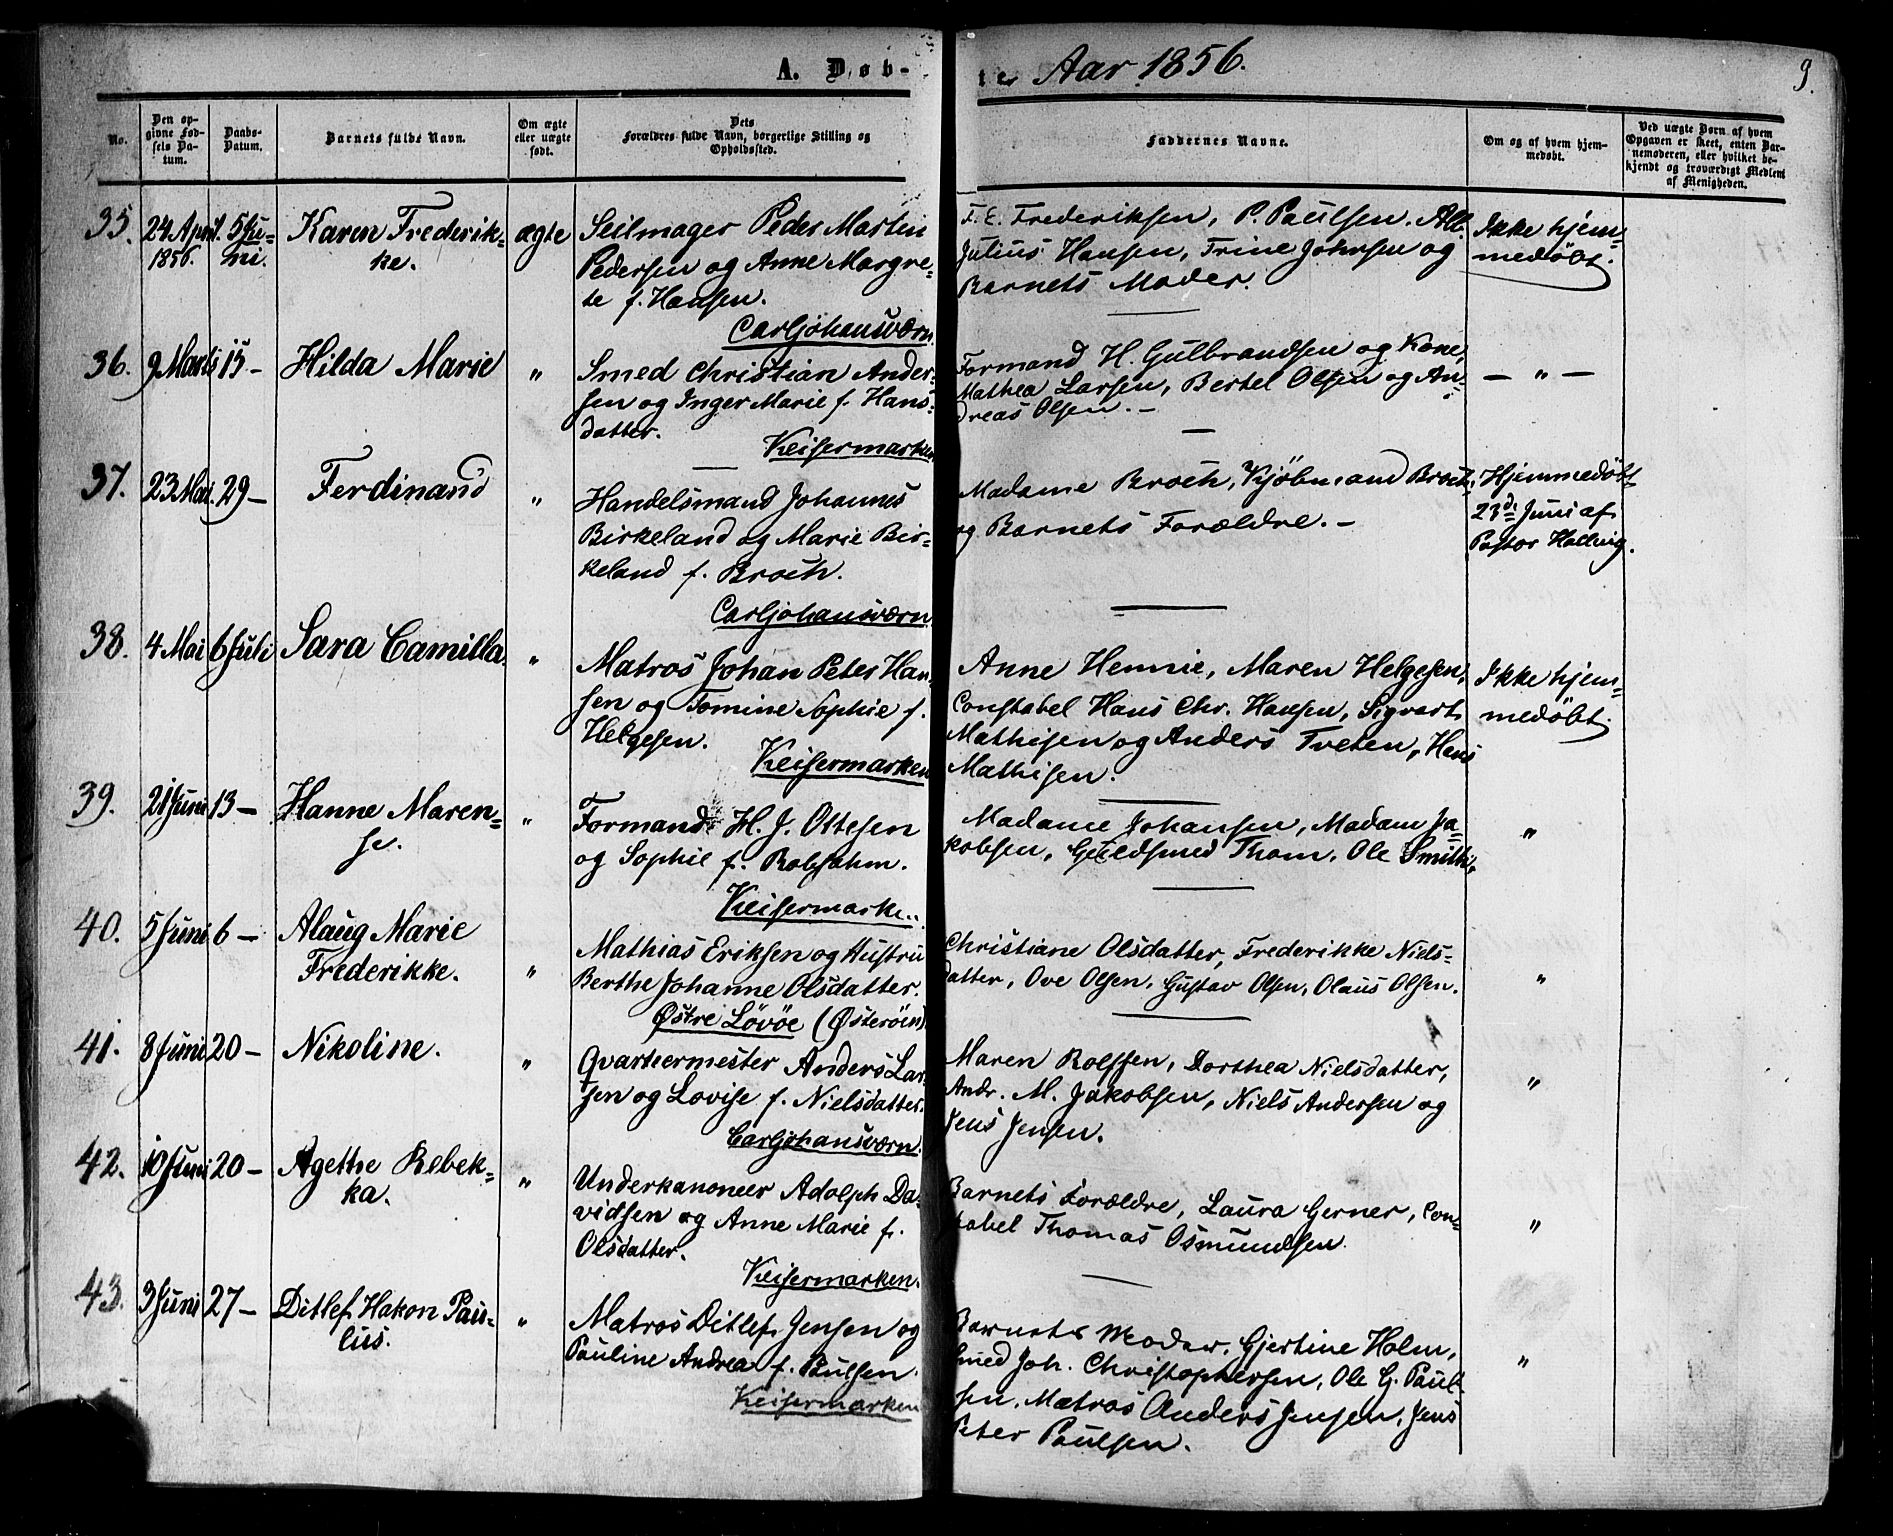 A. Døb-
te Aar 1856.
9.
No.
Den opgivne Fødsels Datum.
Daabs-Datum.
Barnets fulde Navn.
Om ægte eller uægte født.
Dets Forældres fulde Navn, borgerlige Stilling og Opholdssted.
Faddernes Navne.
Om og af hvem hjemmedøbt.
Ved uægte Børn af hvem Opgaven er skeet, enten Barnemoderen, eller hvilket bekjendt og troværdigt Medlem af Menigheden.
35. 24 April 1856. 5 Juni. Karen Frederikke. ægte
Seilmager Peder Martin
Pedersen og Anne Margre-
te f. Hansen.
Carljohansværn
F. E. Frederiksen, P. Paulsen. Alb.
Julius Hansen, Trine Johnsen og
Barnets Moder.
Ikke hjem-
medøbt.
36. 9 Marts 15 – Hilda Marie "
Smed Christian Ander-
sen og Inger Marie f. Hans-
datter.
Keisermarken
Formand H. Gulbrandsen og Kone,
Mathea Larsen, Bertel Olsen og An-
dreas Olsen. –
– " –
37. 23 Mai 29 – Ferdinand "
Handelsmand Johannes
Birkeland og Marie Bir-
keland f. Broch.
Carljohansværn
Madame Broch, Kjøbmand Broch,
og Barnets Forældre. –
Hjemmedøbt
23d. Juni af
Pastor Hallvig.
38. 4 Mai 6 Juli Sara Camilla. "
Matros Johan Peter Han-
sen og Tomine Sophie f.
Helgesen.
Keisermarken
Anne Hennie, Maren Helgesen,
Constabel Hans Chr. Hansen, Sigvart
Mathisen og Anders Tveten, Hans
Mathisen.
Ikke hjem-
medøbt.
39. 21 Juni 13 – Hanne Maren-
se. "
Formand H. J. Ottesen
og Sophie f. Robsahm.
Keisermarke..
Madame Johansen, Madam Ja-
kobsen, Guldsmed Thom. Ole Smith,
"
40. 5 Juni 6 – Alaug Marie
Frederikke. "
Mathias Eriksen og Hustru
Berthe Johanne Olsdatter.
Østre Løvøe (Østerøen)
Christiane Olsdatter, Frederikke Niels-
datter, Ove Olsen, Gustav Olsen, Olaus Olsen.
"
41. 8 Juni 20 – Nikoline. "
Qvarteermester Anders Lar-
sen og Lovise f. Nielsdatter.
Carljohansværn.
Maren Rolfsen, Dorthea Nielsdatter,
Andr. M. Jakobsen, Niels Andersen og
Jens Jensen.
"
42. 10 Juni 20 – Agethe Rebek-
ka. "
Underkanoneer Adolph Da-
vidsen og Anne Marie f.
Olsdatter.
Keisermarken.
Barnets Forældre, Laura Gerner, Con-
stabel Thomas Osmundsen.
"
43. 3 Juni 27 – Ditlef Hakon Pau-
lus. "
Matros Ditlef Jensen og
Pauline Andrea f. Paulsen.
Keisermarken
Barnets Moder, Gjertine Holm,
Smed Joh. Christophersen, Ole G. Paul-
sen, Matros Anders Jensen, Jens
Peter Paulsen.
"